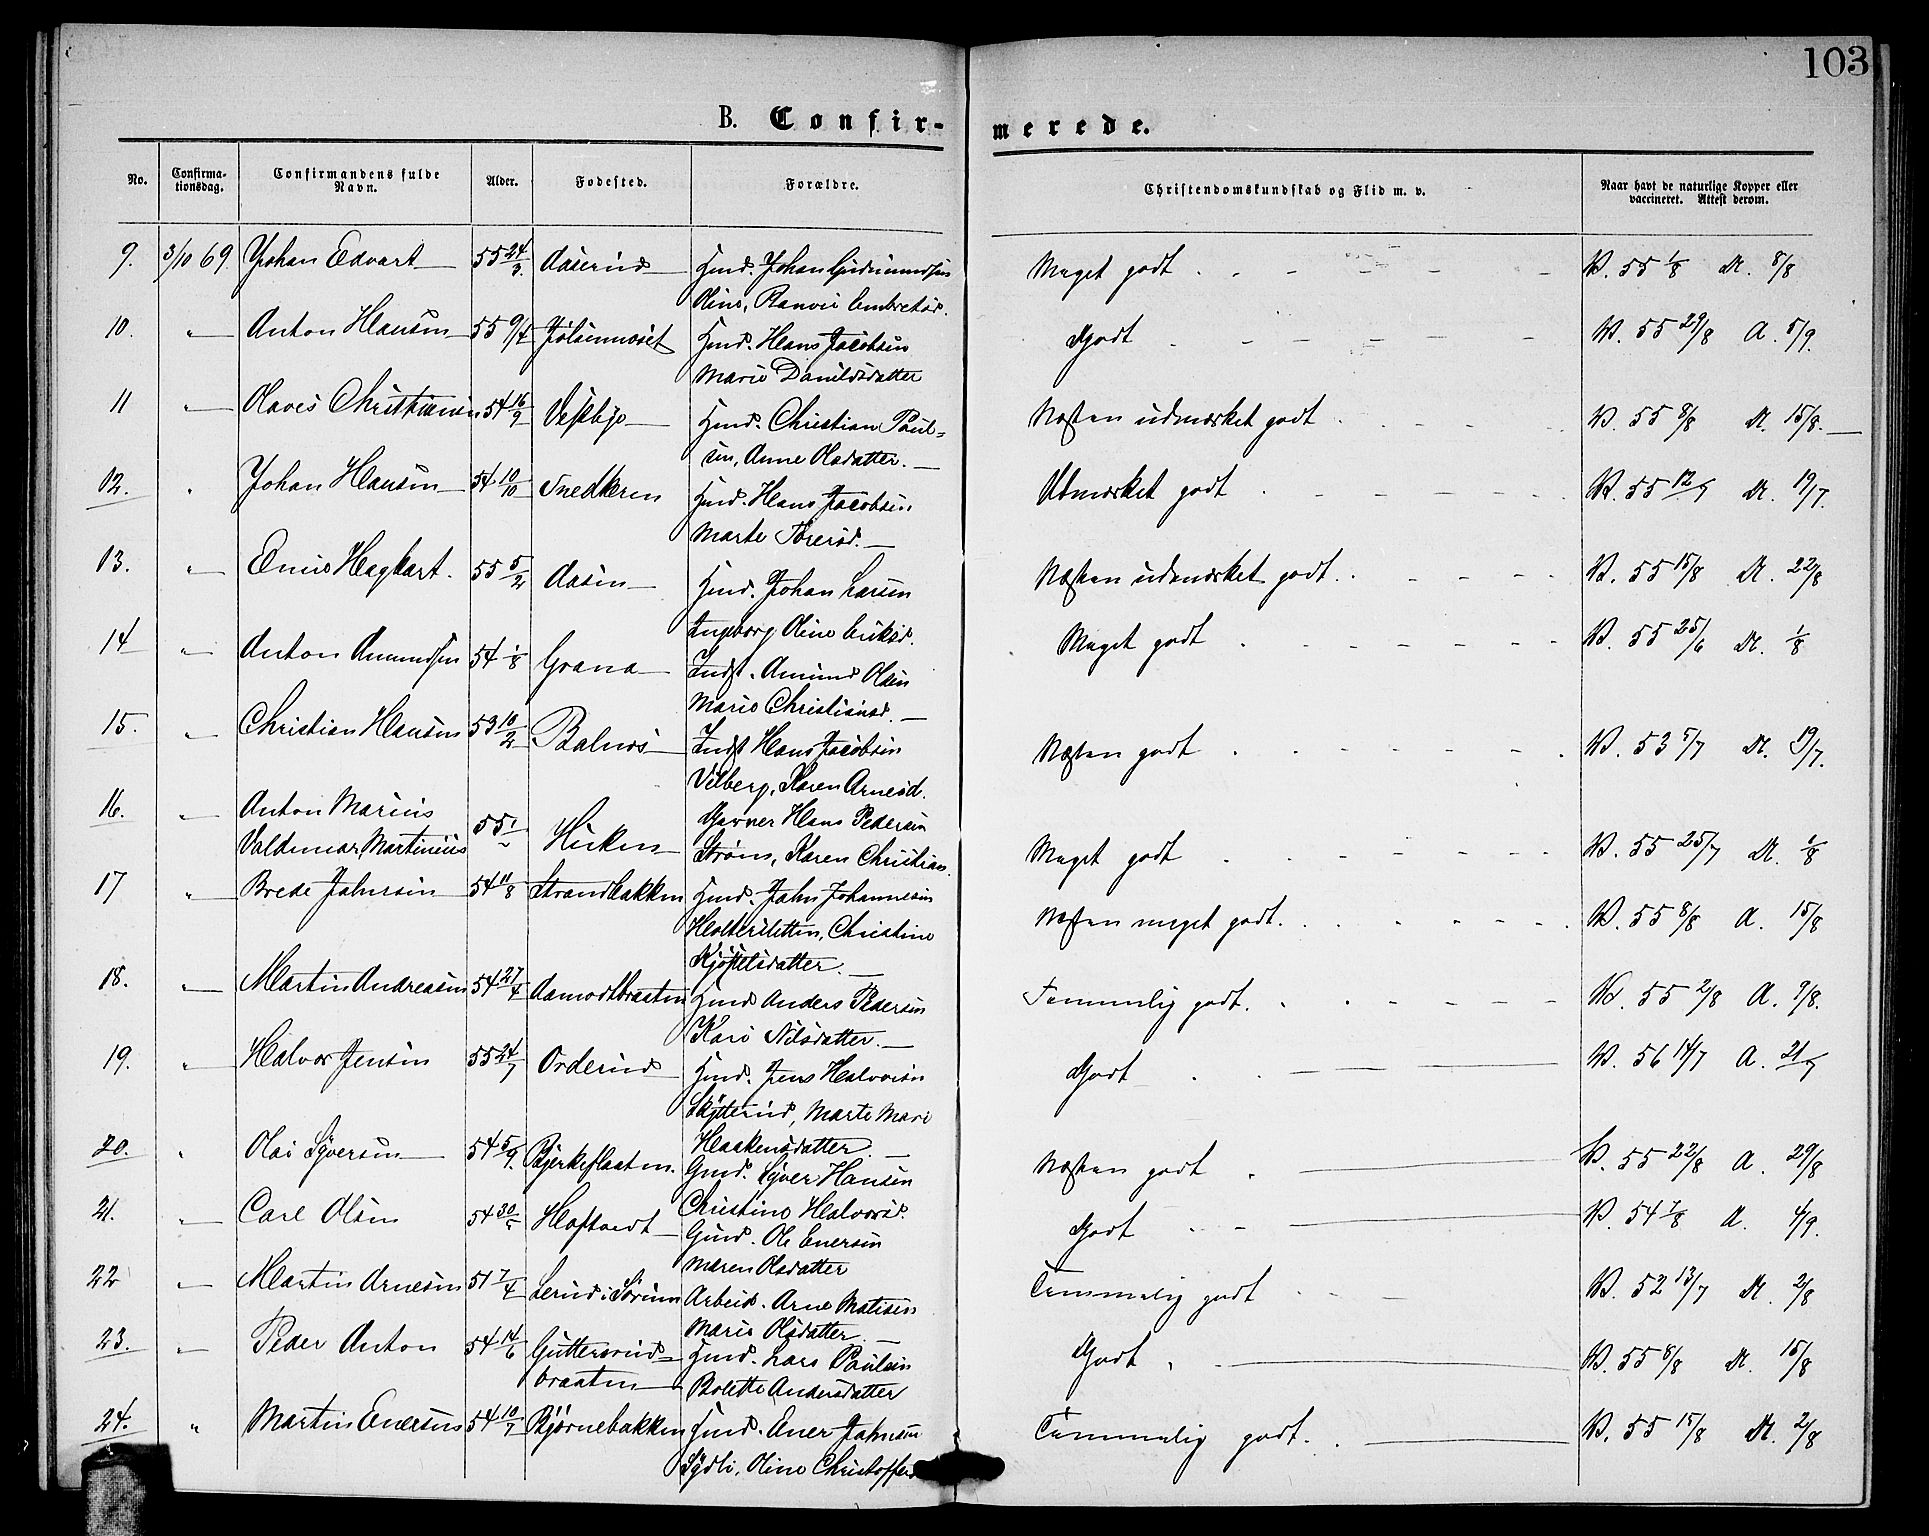 103
B. Confir-merede.
No. Confirma-tionsdag. Confirmandens fulde Navn. Alder. Fødested. Forældre. Christendomskundskab og Flid m. v. Naar havt de naturlige Kopper eller vaccineret. Attest derom.
9. 3/10 69. Johan Edvart 55 24/3. Aaserud Hmd. Johan Gudmundsen Meget godt V. 55 1/8 A. 8/8
Oline, Embretsd.
10. " Anton Hansen 55 9/4 Jølsenmoset Hmd. Hans Jacobsen Godt V. 55 29/8 A. 5/9.
Marie Danielsdatter
11 " Olaves Christiansen 54 16/9 Vestbye Hmd. Christian Paul- Næsten udmærket godt V. 55 8/8 A. 15/8.
sen, Anne Olsdatter.
12. " Johan Hansen 54 10/10 Snedkeren Hmd. Hans Jacobsen Udmærket godt V. 55 12/7 A. 19/7.
Marte Torersd.
13. " Emil Hagbart. 55 5/2 Aasen Hmd. Johan Larsen Næsten udmærket godt. V. 55 15/8 A. 22/8
Ingeborg Oline Eriksd.
14 " Anton Amundsen 54 1/8 Grana Indst. Amund Olsen Meget godt V. 55 25/6 A. 1/8
Marie Christiansd.
15. " Christian Hansen 53 10/2 Balnes Indst Hans Jacobsen Næsten godt V. 53 5/7 A. 19/7.
Vilberg, Karen Arnesd.
16. " Anton Marius 55 1/ Garver Hans Pedersen
Valdemar Martinius Strøm, Karen Christians. Meget godt V. 55 25/7 A. 1/8
17 " Brede Jahnsen 54 11/8 Strandbakken Hmd. Jahn Johannesen Næsten meget godt. V. 55 8/8 A. 15/8
Holtersletten, Christine
Kjøstelsdatter.
18. " Martin Andreasen 54 27/4 Aamodtbraaten Hmd Anders Pedersen Temmelig godt. V. 55 2/8 A. 9/8.
Kari Nilsdatter.
19. " Halvor Jensen 55 24/7 Orderud Hmd. Jens Halvorsen Godt V. 56 14/7 A. 21/7
Skytterud, Marte Mari
Haakensdatter.
20. " Olai Syversen 54 5/9. Bjerkeflaaten. Gmd. Syver Hansen Næsten godt V. 55 22/8 A. 29/8
Christine Halvorsd.
21. " Carl Olsen 54 30/5 Hoftvedt Gmd. Ole Enersen Godt V. 54 7/8 A. 4/9.
Maren Olsdatter
22 " Martin Arnesen 51 7/4 Lerud i Sørum Arbeid. Arne Matisen Temmelig godt V. 52 13/7 A. 2/8
Marie Olsdatter.
23. " Peder Anton 54 14/6 Guttersrud- Hmd. Lars Paulsen Godt V. 55 8/8 A. 15/8
braaten Bolette Andersdatter
24. " Martin Enersen 54 10/7 Bjørnebakken Hmd. Ener Jahnsen Temmelig godt. V. 55 15/8 A. 2/8
Sydli, Oline Christoffers